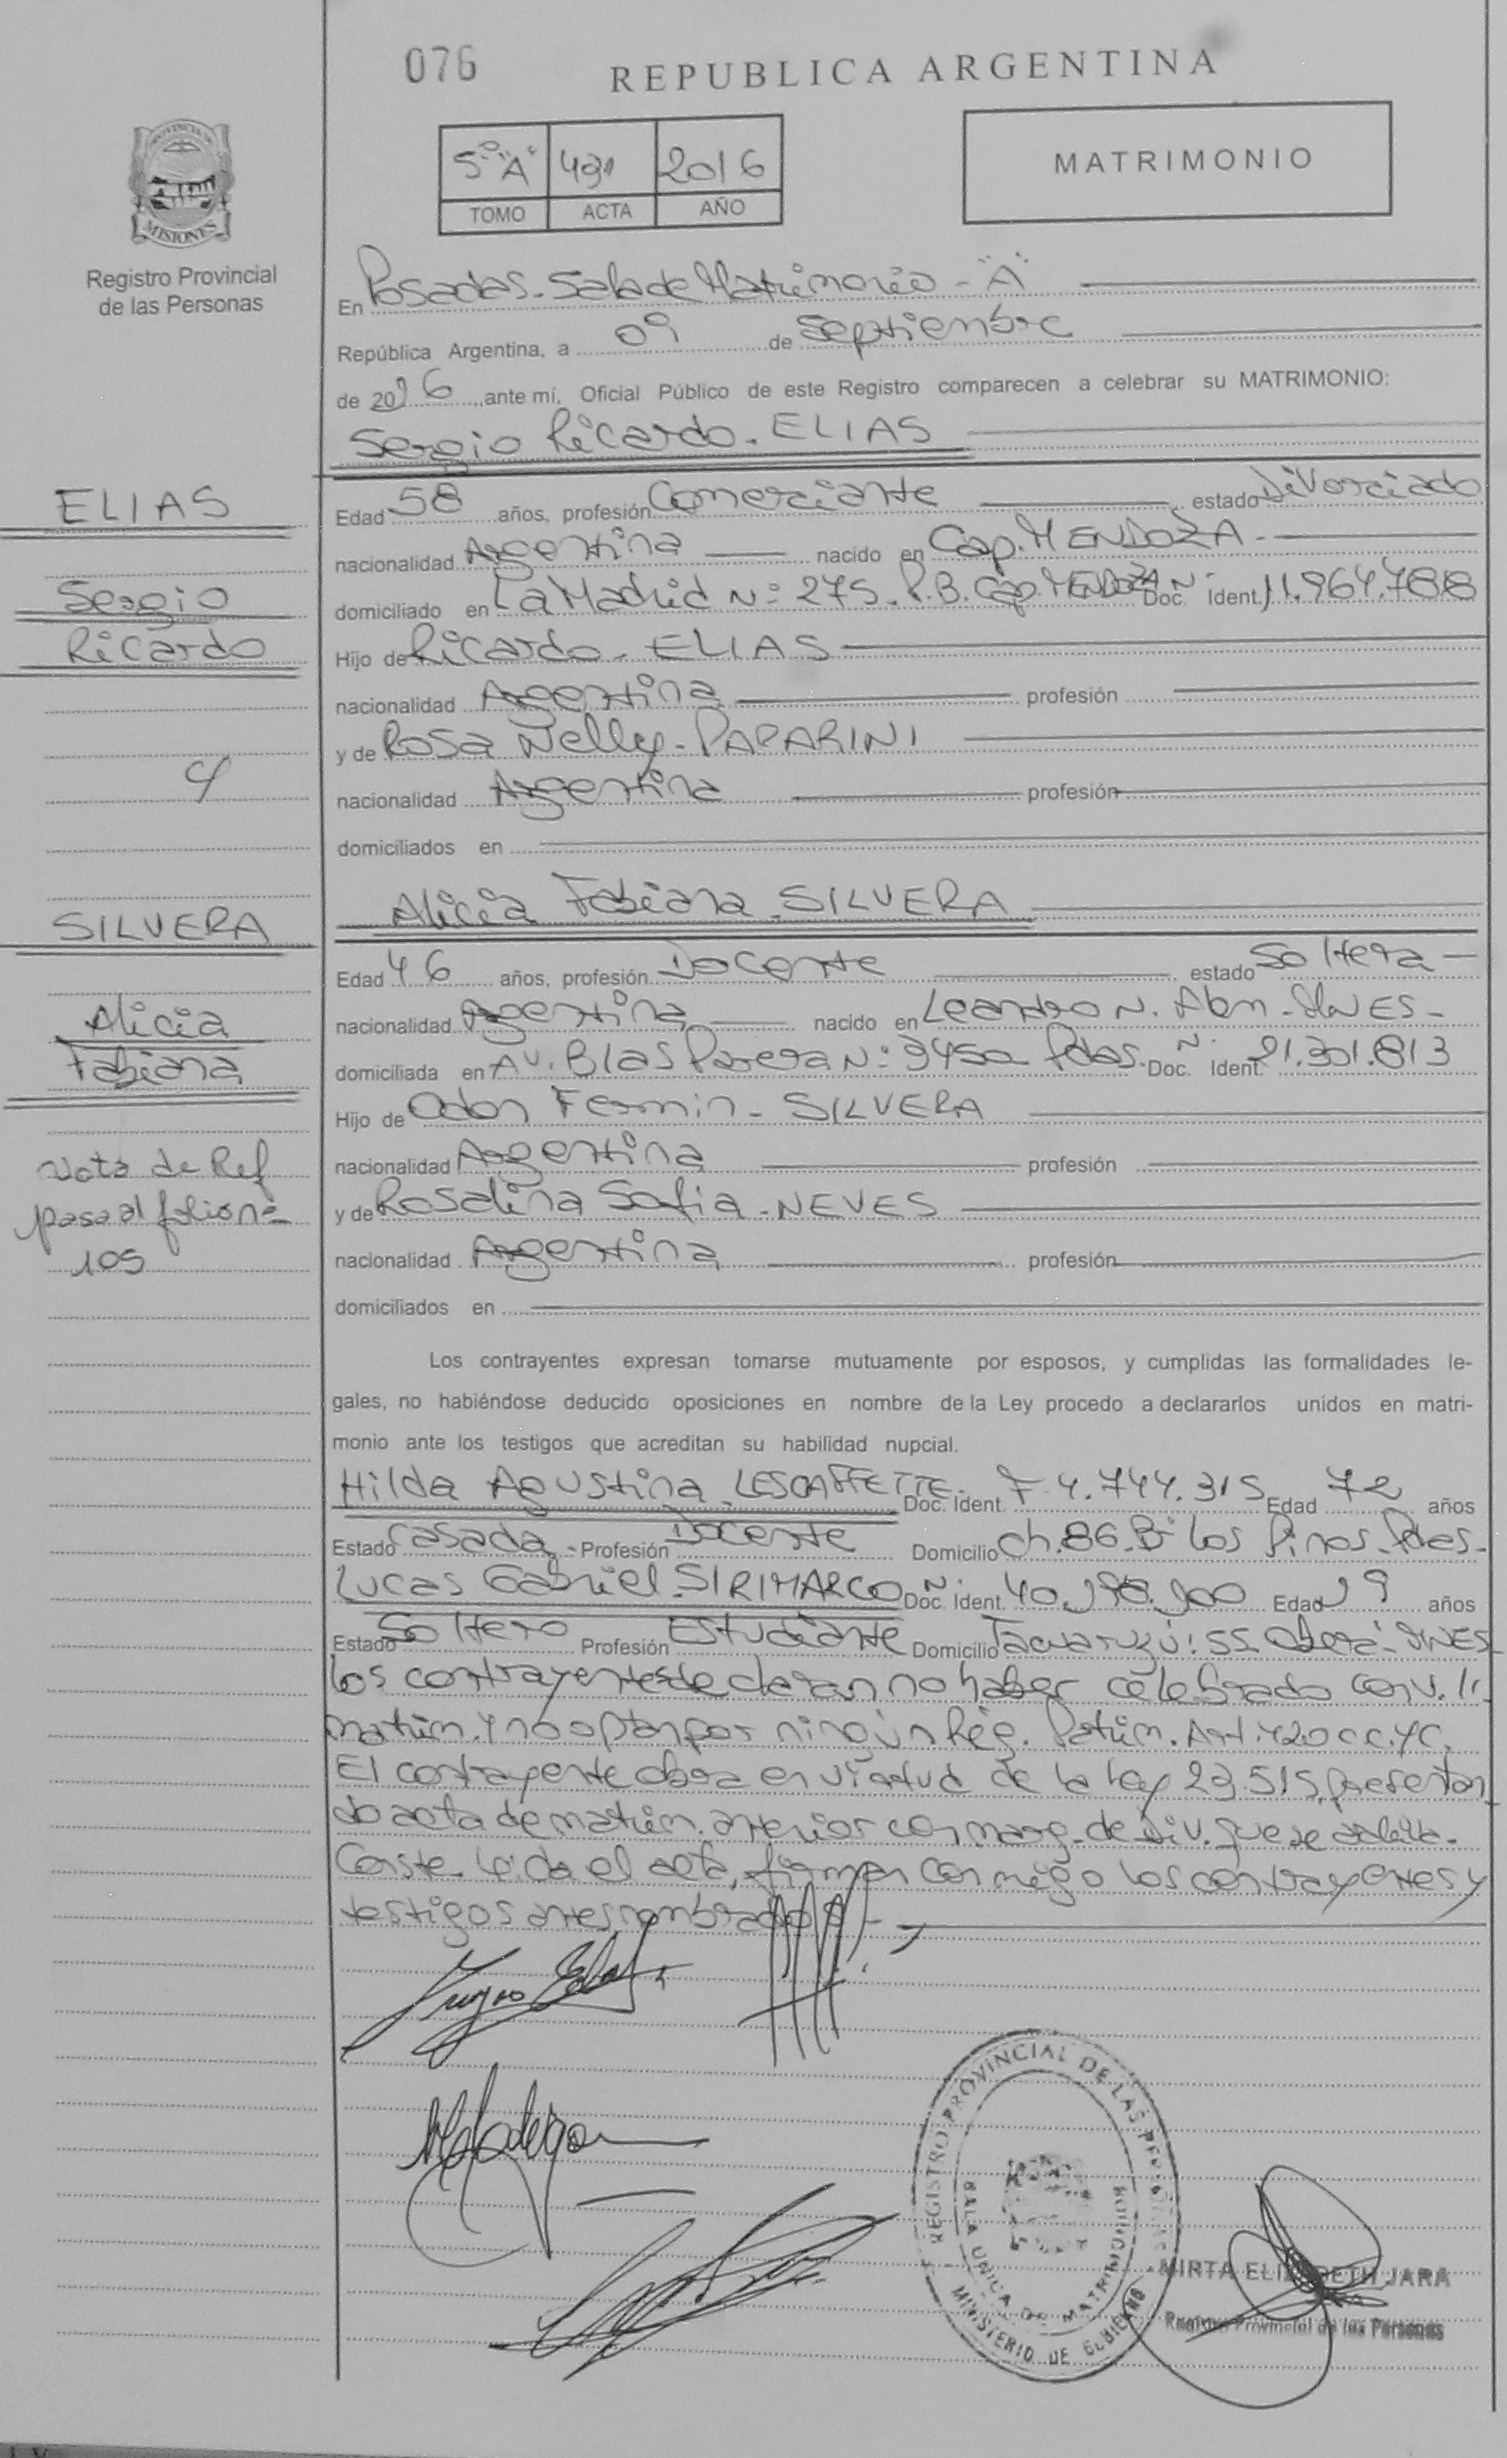 076
REPUBLICA ARGENTINA
MATRIMONIO
5º "A" 491 2016
TOMO ACTA AÑO
PROVINCIA DE
MISIONES
Registro Provincial
de las Personas
En Posadas. Sala de Matrimonio - "A"
República Argentina, a 09 de Septiembre
de 2016, ante mí, Oficial Público de este Registro comparecen a celebrar su MATRIMONIO:
Sergio Ricardo. ELIAS
ELIAS
Sergio
Ricardo
Edad 58 años, profesión Comerciante estado Divorciado
nacionalidad Argentina nacido en Cap. MENDOZA.
domiciliado en La Madrid Nº 275. P.B. Cap. MENDOZA Doc. Ident. 11.964.788
Hijo de Ricardo. ELIAS
nacionalidad Argentina profesión
y de Rosa Nelly. PAPARINI
nacionalidad Argentina profesión
domiciliados en
Alicia Fabiana. SILVERA
SILVERA
Alicia
Fabiana
Edad 46 años, profesión Docente estado Soltera
nacionalidad Argentina nacido en Leandro N. Alem.
domiciliada en Av. Blas Parera Nº 3450 Pdas. Doc. Ident. 21.301.813
Hijo de Odon Fermin. SILVERA
nacionalidad Argentina profesión
y de Rosalina Sofia. NEVES
nacionalidad Argentina profesión
domiciliados en
Nota de Ref
pasa al folio nº
105
Los contrayentes expresan tomarse mutuamente por esposos, y cumplidas las formalidades le-
gales, no habiéndose deducido oposiciones en nombre de la Ley procedo a declararlos unidos en matri-
monio ante los testigos que acreditan su habilidad nupcial.
Hilda Agustina. LESCAFFETTE. Doc. Ident. F 4.744.315 Edad 72 años
Estado Casada Profesión Docente Domicilio Ch. 86. Bº Los Pinos. Pdas.
Lucas Gabriel. SIRIMARCO Doc. Ident. 40.198.900 Edad 19 años
Estado Soltero Profesión Estudiante Domicilio Tacuaruzú: 55 Oberá.
Los contrayentes declaran no haber celebrado conv.
matrim. y no optan por ningún Rég. Patrim. Art. 420 C.C.YC.
El contrayente obra en virtud de la Ley 23.515, presentan-
do acta de matrim. anterior con marg. de Div. que se
Conste. Leida el acta, firman conmigo los contrayentes y
testigos antes nombrados.
REGISTRO PROVINCIAL DE LAS PERSONAS
SALA UNICA DE MATRIMONIOS
MINISTERIO DE GOBIERNO
MIRTA ELIZABETH JARA
Registro Provincial de las Personas